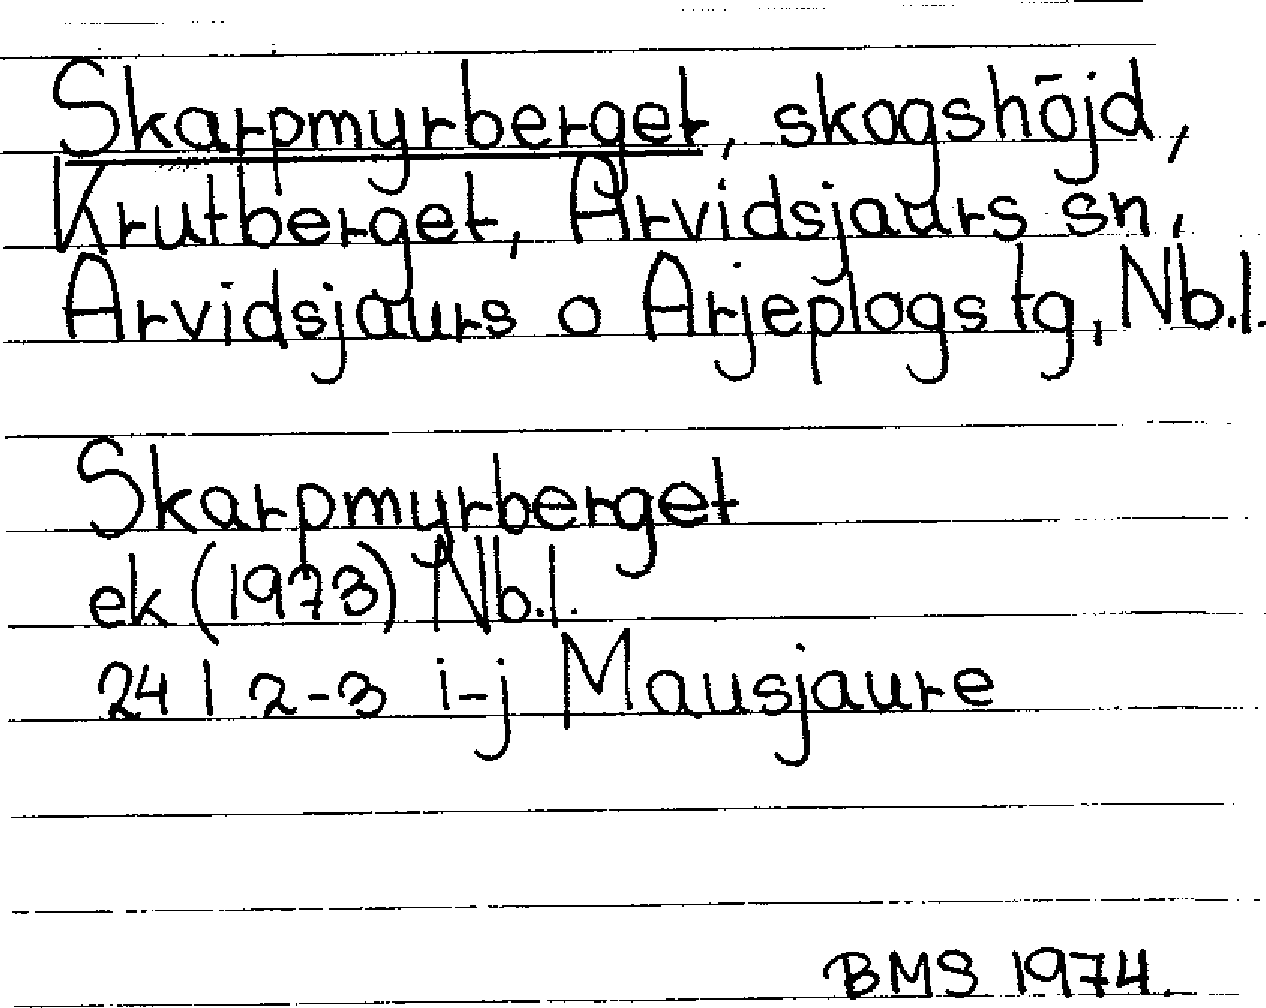 Skarpmyrberget, skogshöjd,
Krutberget, Arvidsjaurs sn,
Arvidsjaurs o Arjeplogs tg, Nb.l.
Skarpmyrberget
ek (1973) Nb.l.
24 I 2-3 i-j Mausjaure
BMS 1974.